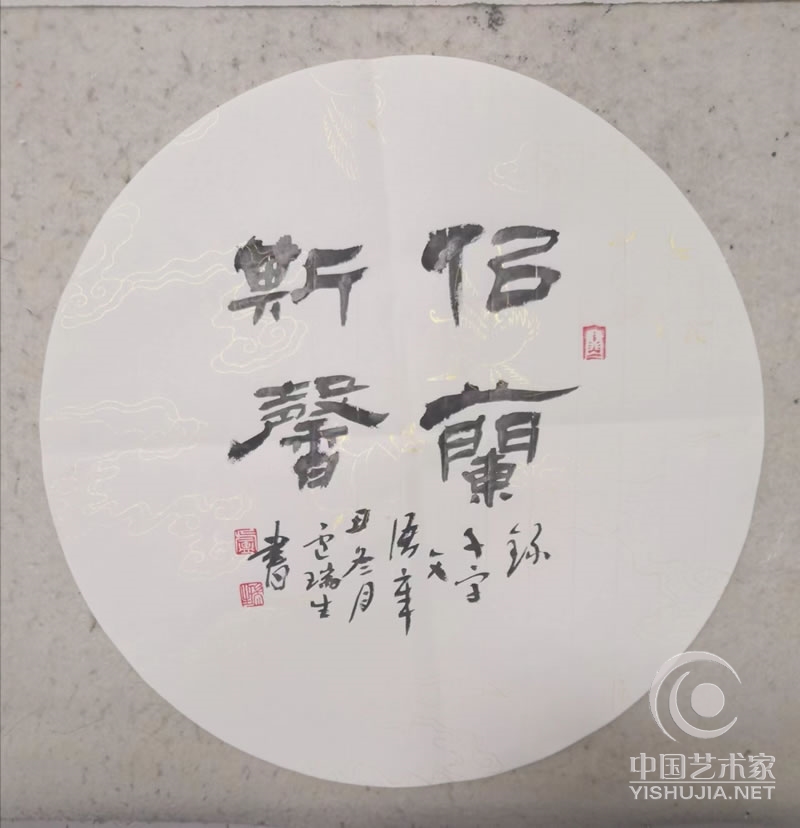 佀蘭
斯馨
錄
千字
文
語辛
丑冬月
盧瑞生
書
中国艺术家
YISHUJIA.NET